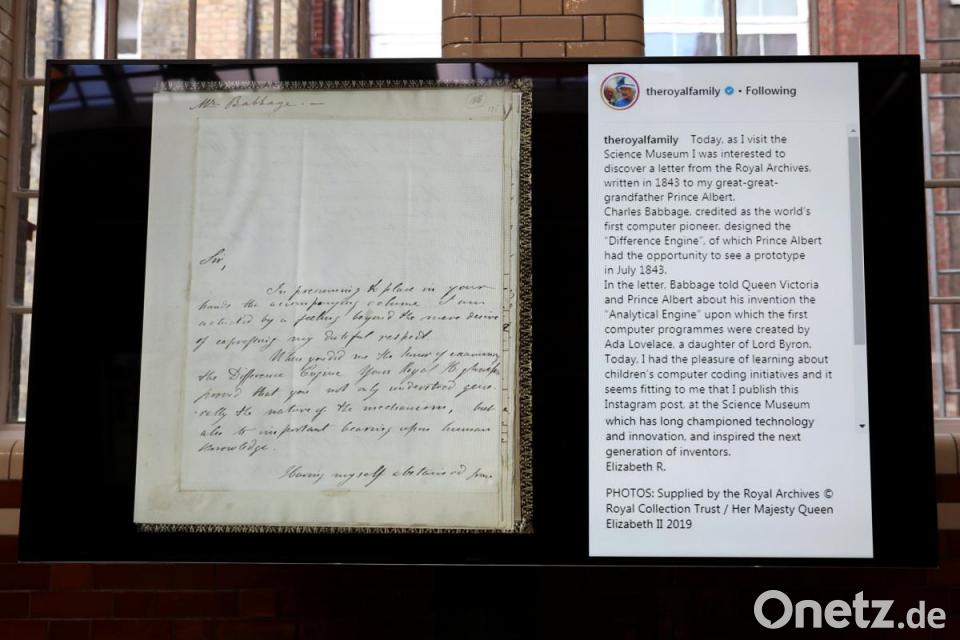 Mr Babbage. —
Sir,
In presuming to place in your
hands the accompanying volume I am
actuated by a feeling beyond the mere desire
of expressing my dutiful respect.
When you did me the honor of examining
the Difference Engine Your Royal Highness
proved that you not only understood gene-
-rally the nature of the mechanism, but
also its important bearing upon human
knowledge.
Having myself abstained from
theroyalfamily • Following
theroyalfamily Today, as I visit the
Science Museum I was interested to
discover a letter from the Royal Archives,
written in 1843 to my great-great-
grandfather Prince Albert.
Charles Babbage, credited as the world's
first computer pioneer, designed the
"Difference Engine", of which Prince Albert
had the opportunity to see a prototype
in July 1843.
In the letter, Babbage told Queen Victoria
and Prince Albert about his invention the
"Analytical Engine" upon which the first
computer programmes were created by
Ada Lovelace, a daughter of Lord Byron.
Today, I had the pleasure of learning about
children's computer coding initiatives and it
seems fitting to me that I publish this
Instagram post, at the Science Museum
which has long championed technology
and innovation, and inspired the next
generation of inventors.
Elizabeth R.
PHOTOS: Supplied by the Royal Archives ©
Royal Collection Trust / Her Majesty Queen
Elizabeth II 2019
Onetz.de